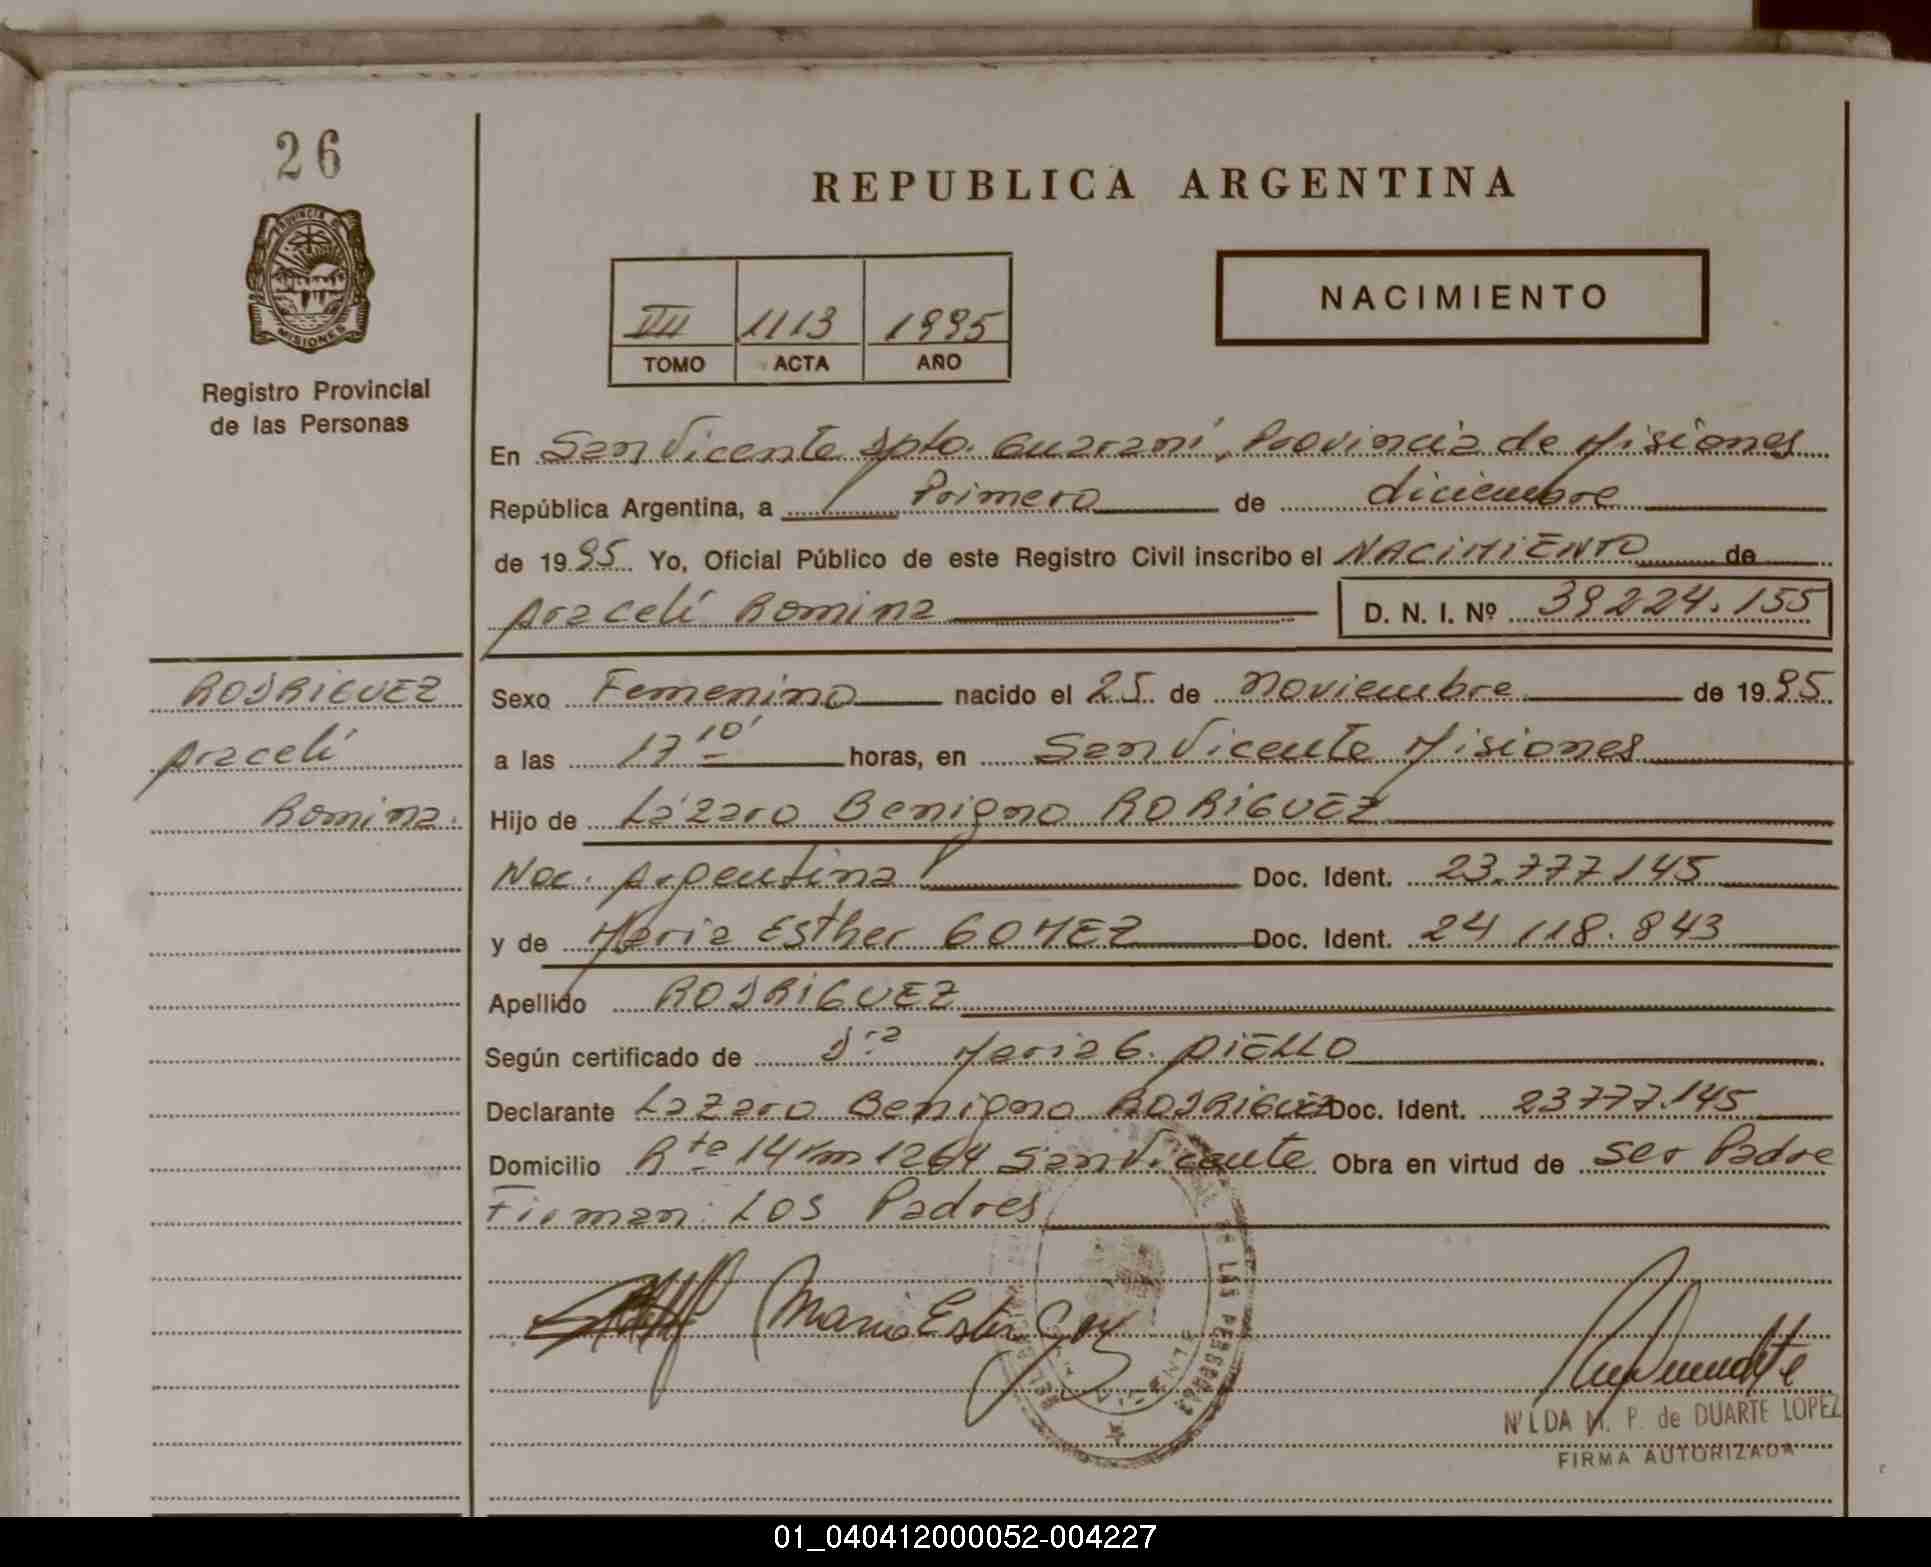 26
REPUBLICA ARGENTINA
PROVINCIA DE
MISIONES
Registro Provincial
de las Personas
NACIMIENTO
VII 1113 1995
TOMO ACTA AÑO
En San Vicente Dpto. Guaraní, Provincia de Misiones
República Argentina, a Primero de diciembre
de 1995. Yo, Oficial Público de este Registro Civil inscribo el NACIMIENTO de
Aracelí Romina D. N. I. Nº 39224.155
RODRIGUEZ
Aracelí
Romina.
Sexo Femenino nacido el 25 de Noviembre de 1995.
a las 17 10' horas, en San Vicente Misiones
Hijo de Lázaro Benigno RORIGUEZ
Nac. Argentina Doc. Ident. 23.777.145
y de Maria Esther GOMEZ Doc. Ident. 24 118.843
Apellido RODRIGUEZ
Según certificado de Dra Maria G. DIELLO
Declarante Lazaro Benigno RODRIGUEZ Doc. Ident. 23777.145
Domicilio Rta 14 Km 1264 San Vicente Obra en virtud de ser Padre
Firman: Los Padres
DE LAS PERSONAS
NILDA M. P. de DUARTE LOPEZ
FIRMA AUTORIZADA
01_040412000052-004227